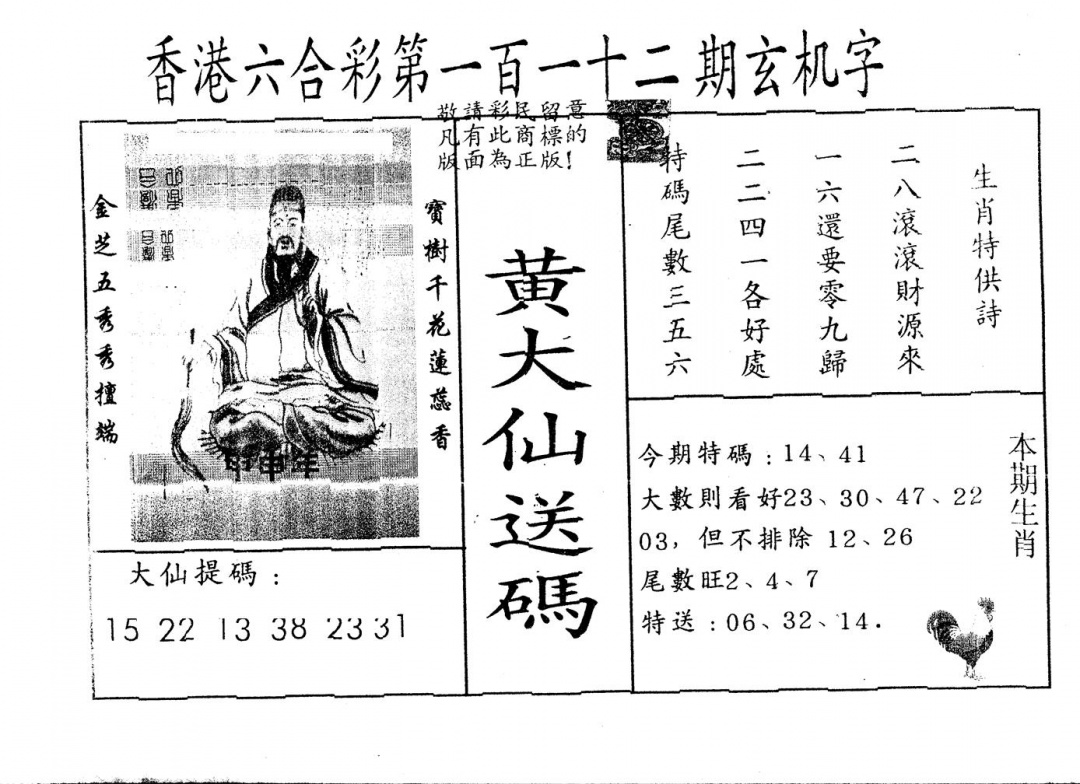 香港六合彩第一百一十二期玄机字
敬請彩民留意
凡有此商標的
版面為正版！
金芝五秀秀擅端
寶樹千花蓮蕊香
甲申年
大仙提碼：
15 22 13 38 23 31
黄大仙送碼
生肖特供詩
二八滾滾財源來
一六還要零九歸
二二四一各好處
特碼尾數三五六
本期生肖
今期特碼：14、41
大數則看好23、30、47、22
03，但不排除 12、26
尾數旺2、4、7
特送：06、32、14．